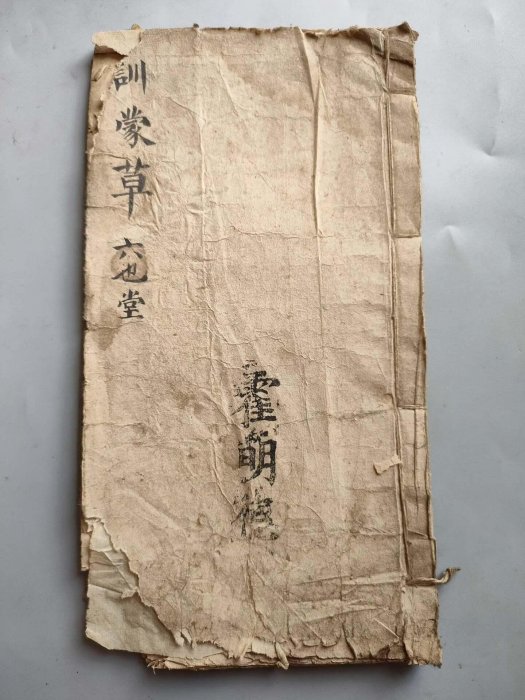 訓蒙草 六也堂
霍明